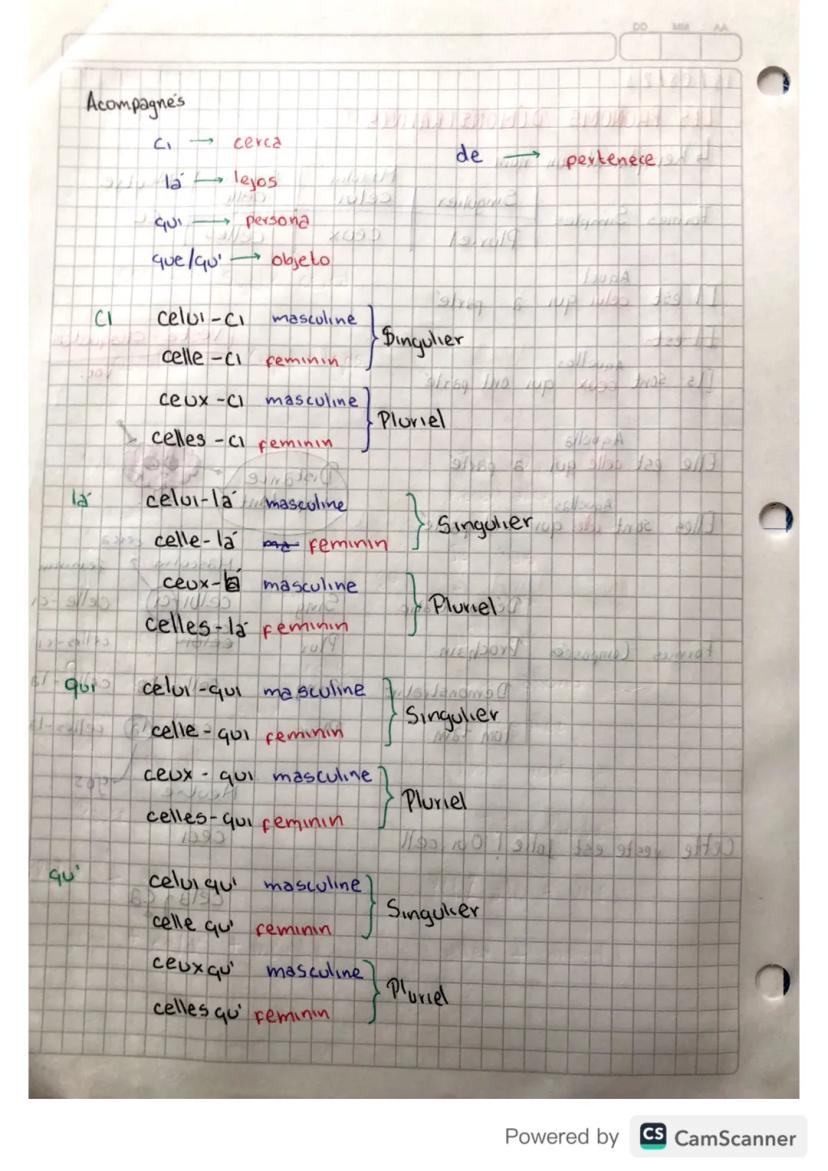 DD MM AA
Acompagnés
ci → cerca
de → pertenece
lá → lejos
qui → persona
que/qu' → objeto
ci celui-ci masculine
Singulier
celle-ci feminin
ceux-ci masculine
Pluriel
celles-ci feminin
lá celui-lá masculine
Singulier
celle-lá feminin
ceux-lá masculine
Pluriel
celles-lá feminin
qui celui-qui masculine
Singulier
celle-qui feminin
ceux-qui masculine
Pluriel
celles-qui feminin
qu' celui qu' masculine
Singulier
celle qu' feminin
ceux qu' masculine
Pluriel
celles qu' feminin
Powered by CS CamScanner